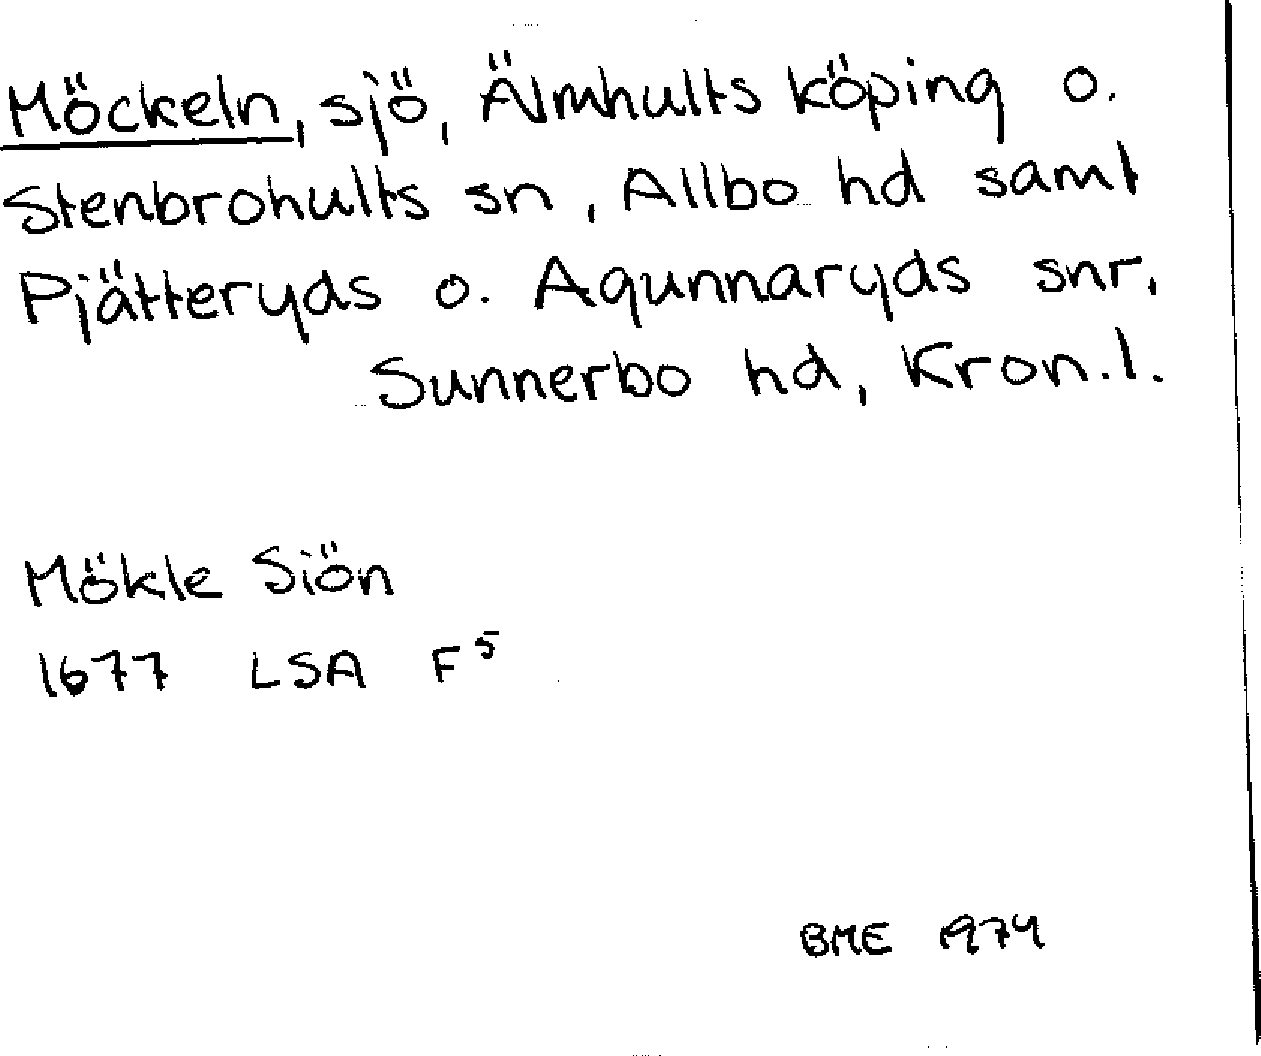 Möckeln, sjö, Älmhults köping o.
Stenbrohults sn, Allbo hd samt
Pjätteryds o. Agunnaryds snr,
Sunnerbo hd, Kron.l.
Mökle Siön
1677 LSA F⁵
BME 1974